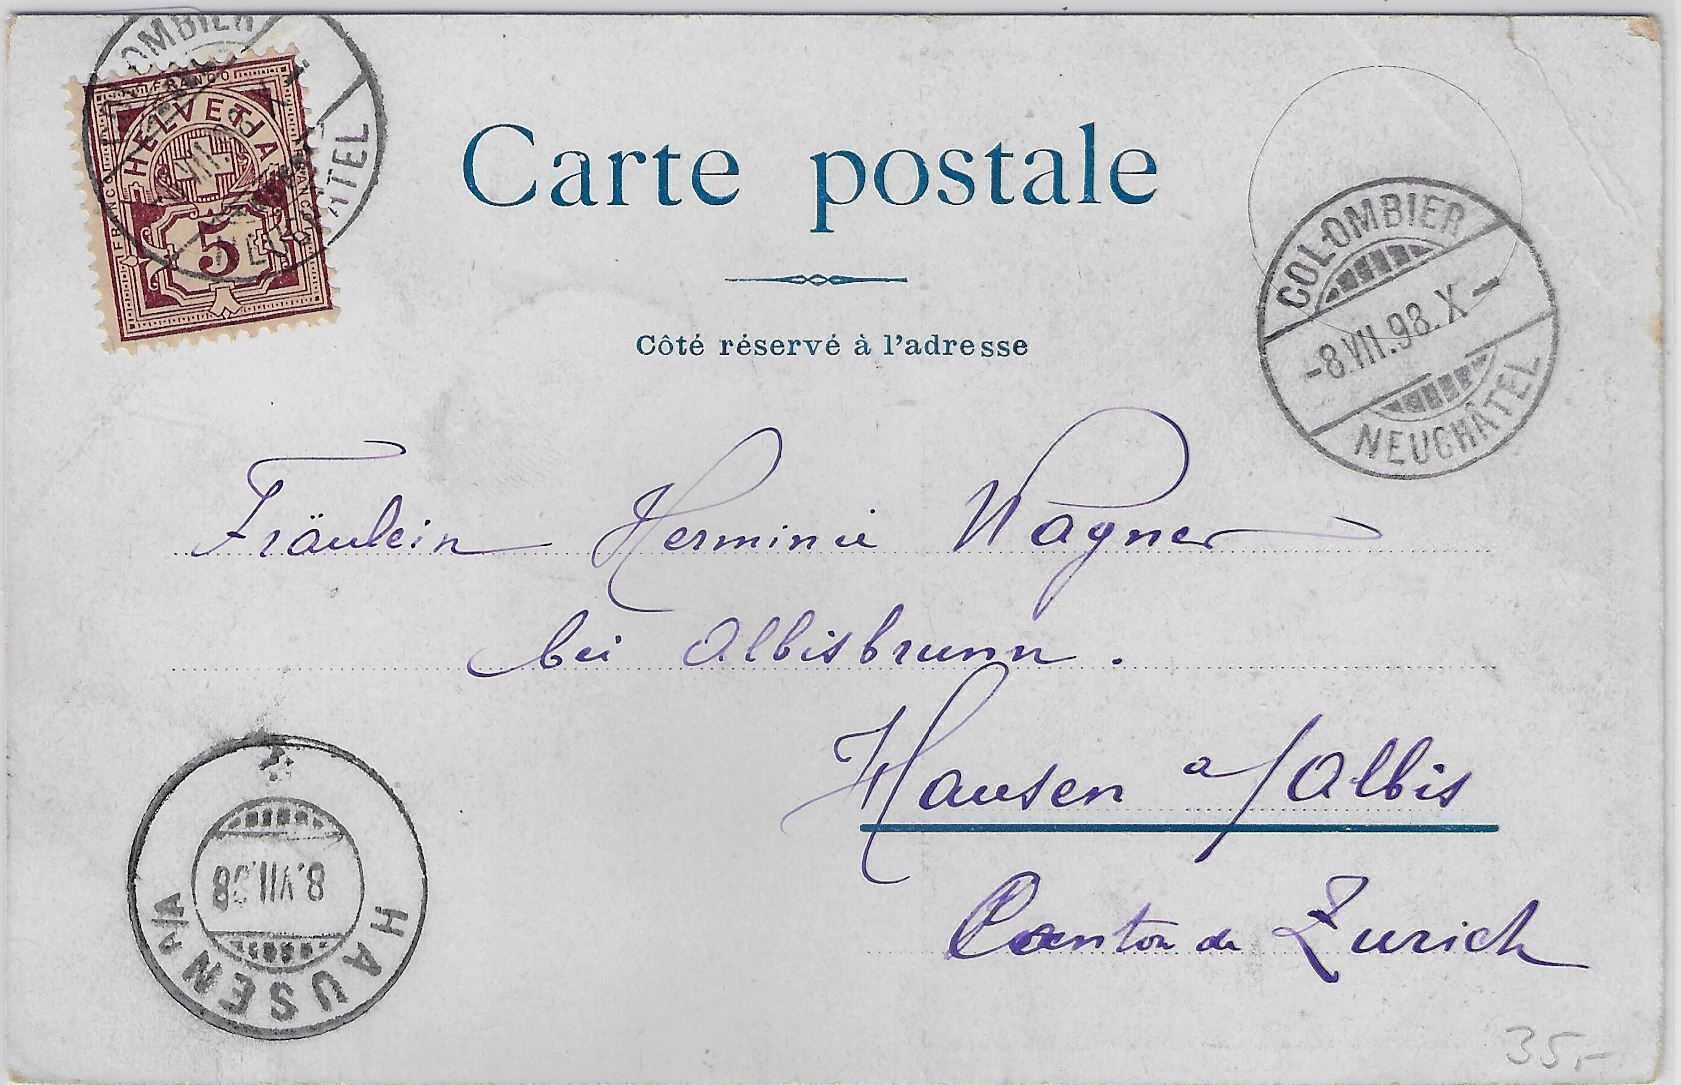 COLOMBIER
NEUCHÂTEL
FRANCO
HELVETIA
5
Carte postale
Côté réservé à l'adresse
COLOMBIER
-8.VII.98.X-
NEUCHÂTEL
Fräulein Herminie Wagner
bei Albisbrunn.
Hausen a/Albis
Canton de Zurich
HAUSEN A/A
8.VII.98
35,-